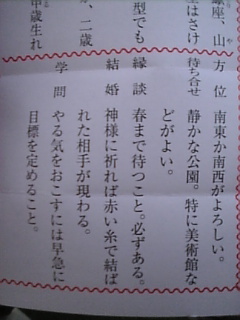 座、山
はさけ
型でも
、二歳
歳生れ
方位　南東か南西がよろしい。
待ち合せ　静かな公園。特に美術館な
どがよい。
縁談　春まで待つこと。必ずある。
結婚　神様に祈れば赤い糸で結ば
れた相手が現わる。
学問　やる気をおこすには早急に
目標を定めること。